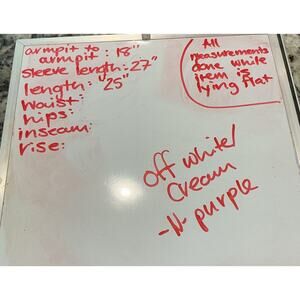 armpit to
armpit: 18"
sleeve length: 27"
length: 25"
waist:
hips:
inseam:
rise:
All
measurements
done while
item is
lying flat
off white/
Cream
-N- purple